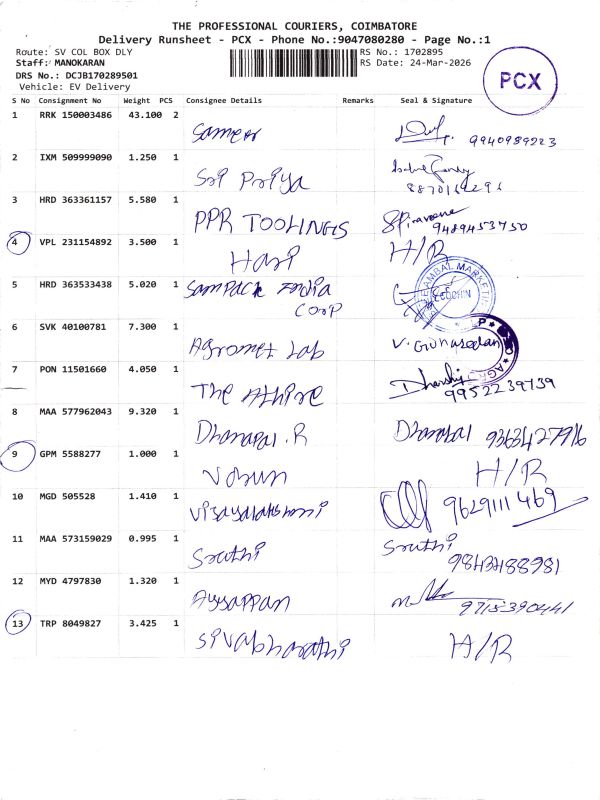 THE PROFESSIONAL COURIERS, COIMBATORE
Delivery Runsheet - PCX - Phone No.:9047080280 - Page No.:1
Route: SV COL BOX DLY RS No.: 1702895
Staff: MANOKARAN RS Date: 24-Mar-2026
DRS No.: DCJB170289501
Vehicle: EV Delivery
PCX
S No Consignment No Weight PCS Consignee Details Remarks Seal & Signature
1 RRK 150003486 43.100 2 Sameer
9940989223
2 IXM 509999090 1.250 1 Sri Priya
3 HRD 363361157 5.580 1 PPR TOOLINGS
9489453750
4 VPL 231154892 3.500 1 Hari H/R
5 HRD 363533438 5.020 1 Sampack India
Corp
6 SVK 40100781 7.300 1 Agromet Lab V. Gunaseelan
7 PON 11501660 4.050 1 The Athire
9952239739
8 MAA 577962043 9.320 1 Dhanapal.R Dhanapal 9363427916
9 GPM 5588277 1.000 1 Varun H/R
10 MGD 505528 1.410 1 Vijayalakshmi 9629111469
11 MAA 573159029 0.995 1 Sruthi Sruthi
9843488981
12 MYD 4797830 1.320 1 Ayyappan
9715390441
13 TRP 8049827 3.425 1 Sivabharathi H/R